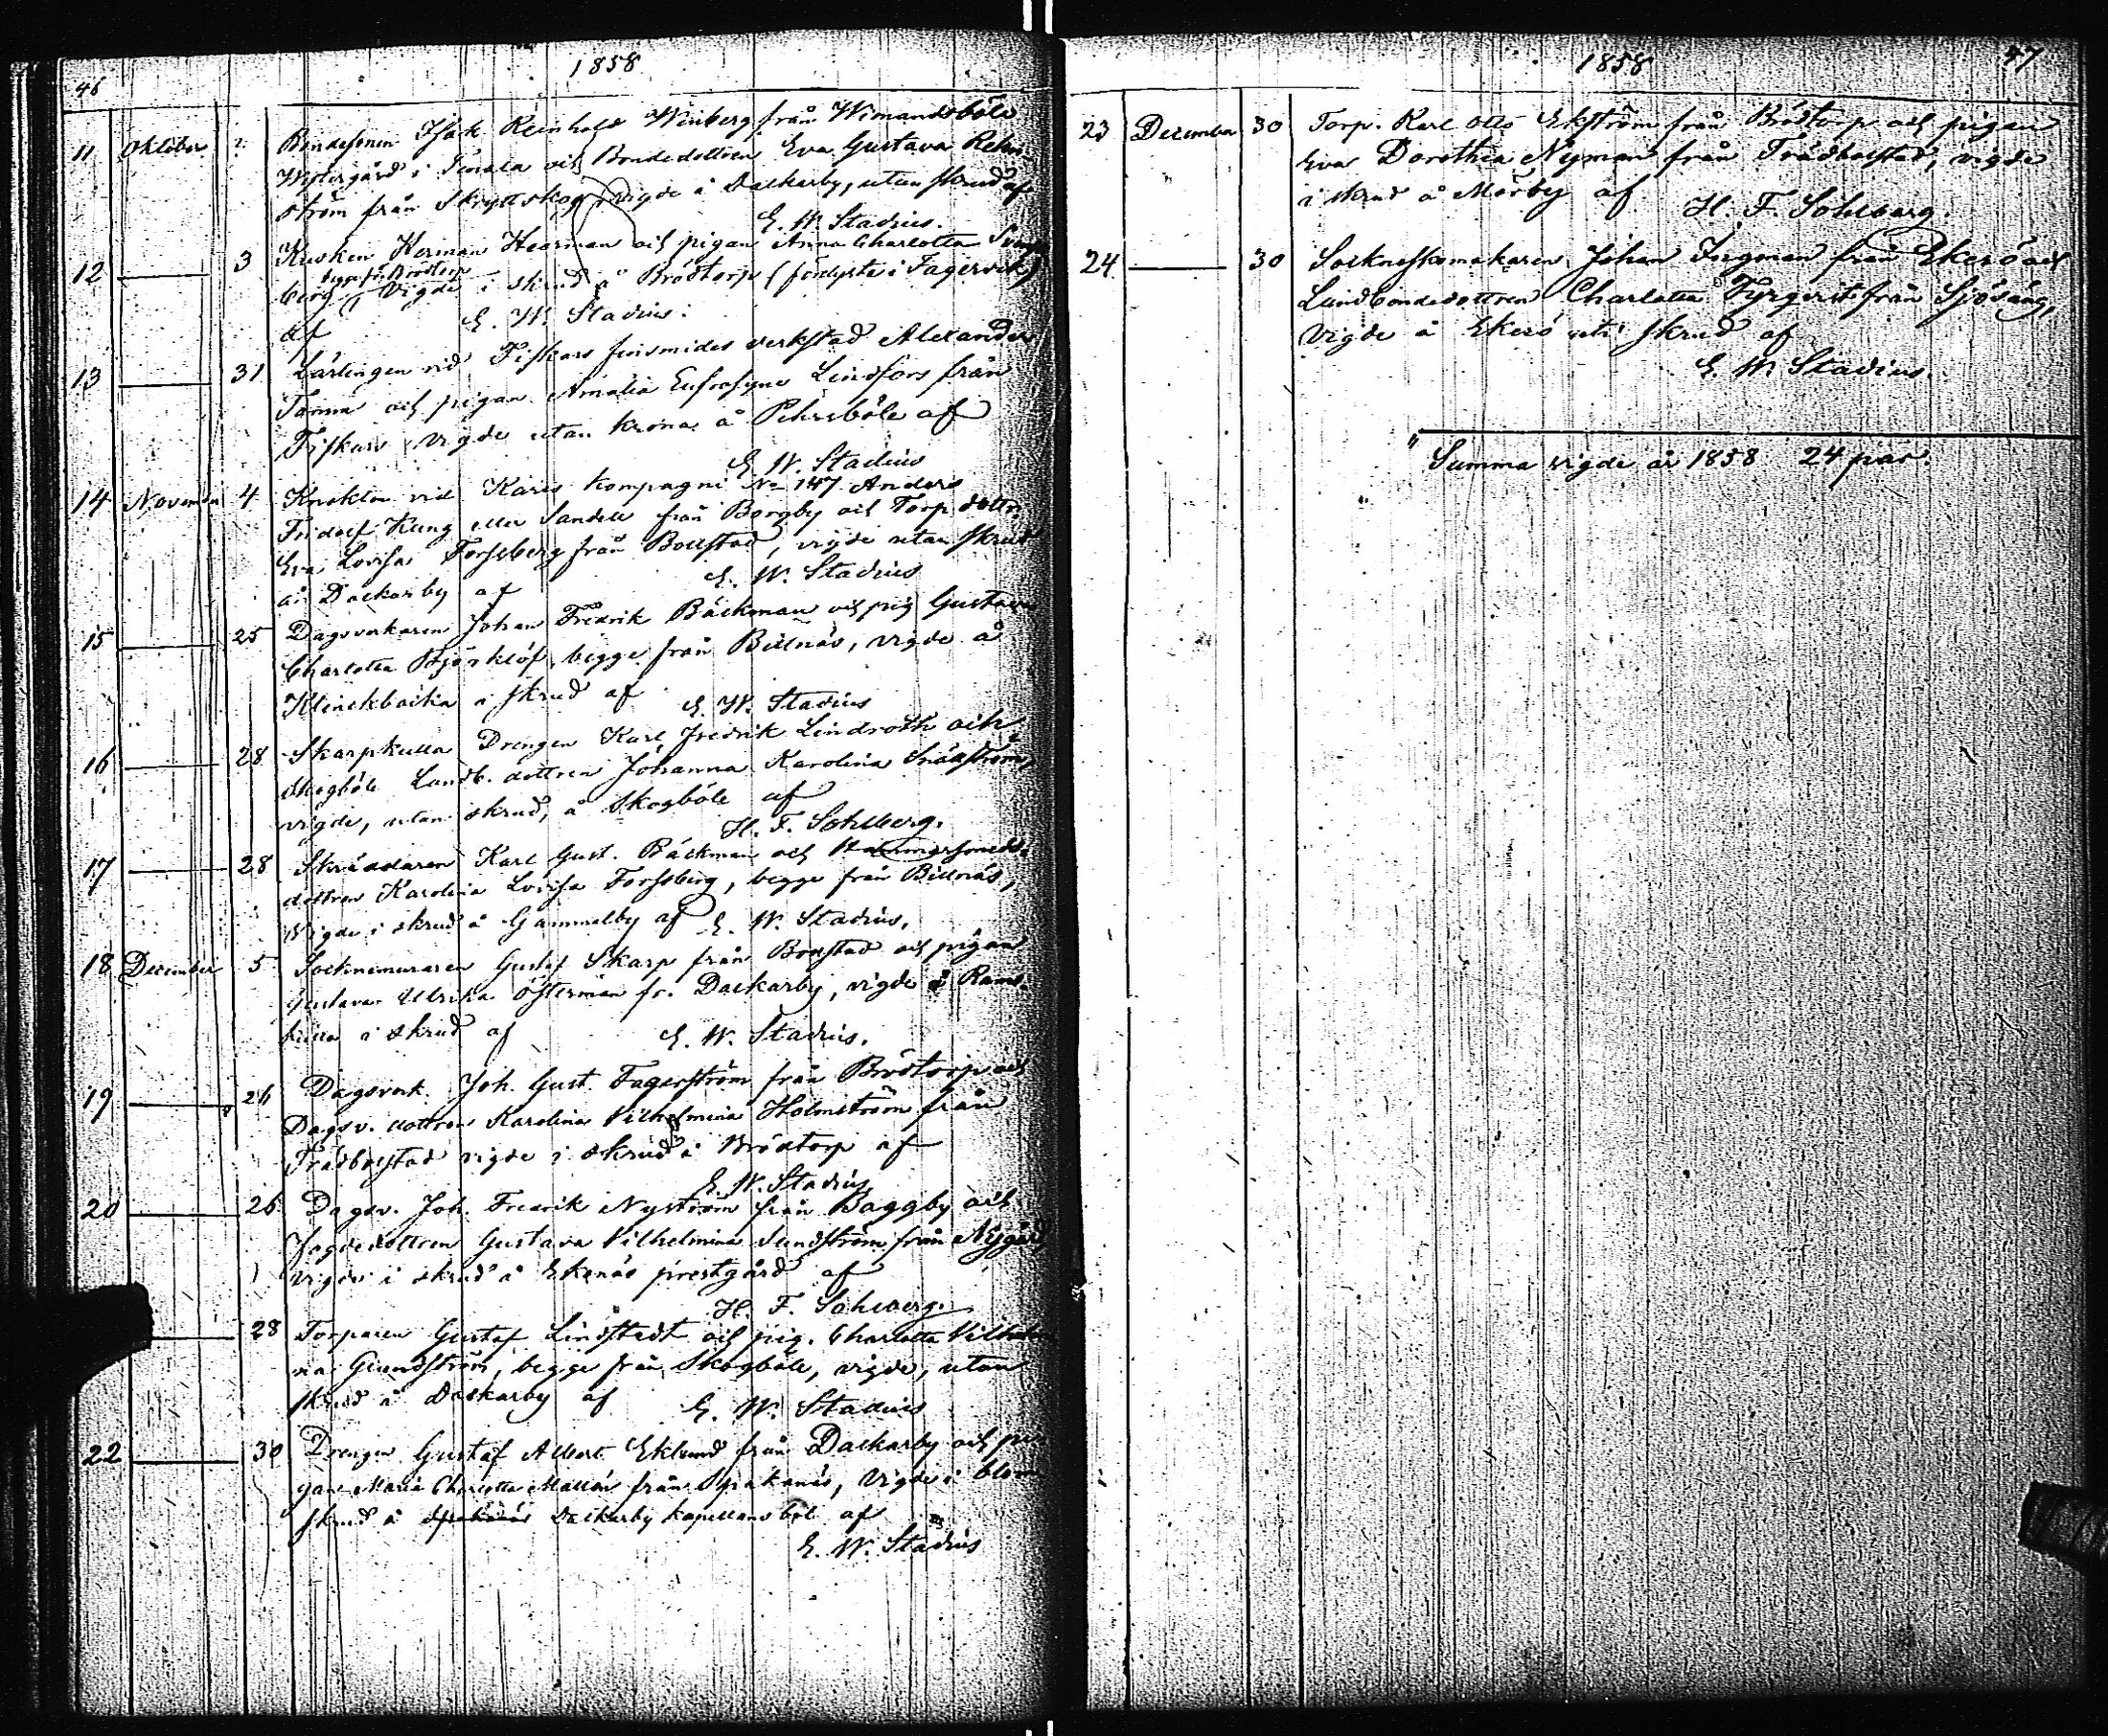 46
1858
11 Oktober 2. Bondesonen Isak Reinhold Winberg från Wimandsböle
Westergård i Tenala och Bondedottren Eva Gustava Rehn-
ström från Skryttskog, vigde å Dackarby, utan skrud af
E. W. Stadius.
12 3 Kusken Herman Hearman och pigan Anna Charlotta
begge från Brödtorp
berg, vigde i skrud å Brödtorp (förlyste i Fagervik)
af E. W. Stadius.
13 31 Lärlingen vid Fiskars finsmides verkstad Alexander
Tamm och pigan Amalia Eufrosyne Lindfors från
Fiskars, vigde utan krona å Pehrsböle af
E. W. Stadius
14 November 4 Knekten vid Karis kompagni No 147 Anders
Fridolf Kung eller Sandell från Borgby och Torp.dottr.
Eva Lovisa Forssberg från Bollstad, vigde utan skrud
å Dackarby af E. W. Stadius
15 25 Dagsverkaren Johan Fredrik Bäckman och pig. Gustava
Charlotta Björklöf, begge från Billnäs, vigde å
Klinckbacka i skrud af E. W. Stadius
16 28 Skarpkulla Drengen Karl Fredrik Lindroth och
Skogböle Landb. dottren Johanna Karolina
vigde, utan skrud, å Skogböle af
H. F. Sohlberg.
17 28 Skräddaren Karl Gust. Bäckman och Hammarsmeds-
dottren Karolina Lovisa Forssberg, begge från Billnäs,
Vigde i skrud å Gammelby af E. W. Stadius.
18 December 5 Socknemuraren Gustaf Skarp från Bonstad och pigan
Gustava Ulrika Österman fr. Dackarby, vigde å Rams-
kulla i skrud af E. W. Stadius.
19 26 Dagsverk. Joh. Gust. Fagerström från Brödtorp och
Dagsv. dottren Karolina Vilhelmina Holmström från
Trädbolstad vigde i skrud å Brödtorp af
E. W. Stadius
20 26 Dagsv. Joh. Fredrik Nyström från Baggby och
Fogdedottren Gustava Vilhelmina Sundström från Nygård,
vigde i skrud å Ekenäs prestgård af
H. F. Sohlberg.
28 Torparen Gustaf Lindstedt och pig. Charlotta Vilhelmi
na Grundström, begge från Skogböle, vigde, utan
skrud å Dackarby af E. W. Stadius
22 30 Drengen Gustaf Albert Eklund från Dackarby och pi-
gan Maria Charlotta Mallén från Spakanäs, vigde i blom
skrud å Spakanäs Dackarby kapellans bol af
E. W. Stadius
1858
47
23 December 30 Torp. Karl Otto Ekström från Brödtorp och pigan
Eva Dorothea Nyman från Trädbolstad, vigde
i skrud å Mörby af H. F. Sohlberg.
24 30 Sockneskomakaren Johan Forgman från Ekerö och
Landbondedottren Charlotta från Sjösäng,
Vigde å Ekerö uti skrud af
E. W. Stadius.
Summa vigde år 1858 24 par.